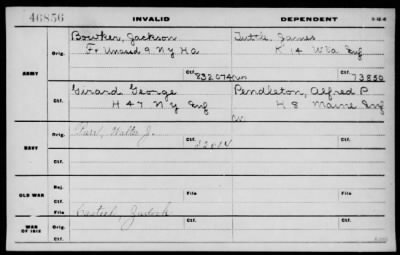 46856 INVALID DEPENDENT
Bowker, Jackson Tuttle, James
Orig. F Unasd 9 N Y H A K 14 W Va Inf
ARMY
Ctf. 832074 Ctf. 73850
Girard George Pendleton, Alfred P
Ctf. H 47 N Y Inf H 8 Maine Inf
Orig. Walter J.
NAVY 32014
Ctf.
Rej. File Ctf.
OLD WAR
Ctf.
File
WAR OF 1812
Ctf. File Ctf.